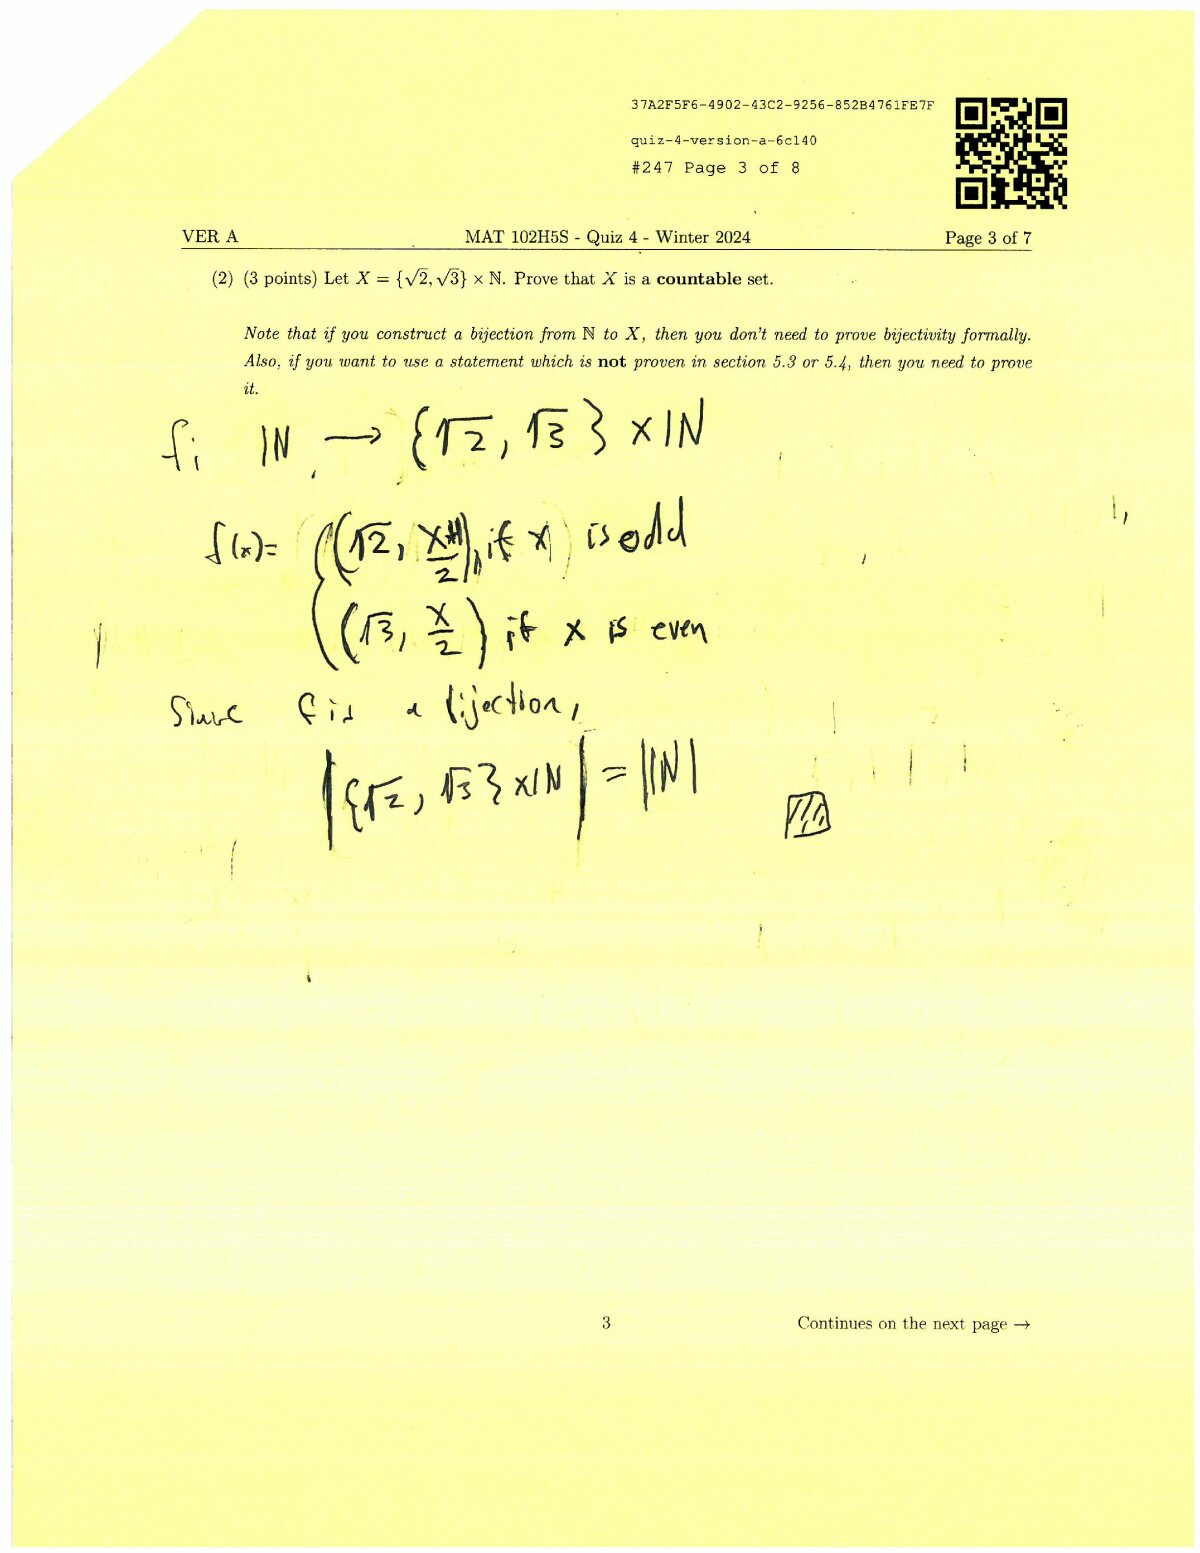 37A2F5F6-4902-43C2-9256-852B4761FE7F
quiz-4-version-a-6c140
#247 Page 3 of 8
VER A MAT 102H5S - Quiz 4 - Winter 2024 Page 3 of 7
(2) (3 points) Let X = {√2, √3} × ℕ. Prove that X is a countable set.
Note that if you construct a bijection from ℕ to X, then you don't need to prove bijectivity formally.
Also, if you want to use a statement which is not proven in section 5.3 or 5.4, then you need to prove
it.
f: ℕ → {√2, √3} × ℕ
f(x) = { (√2, (x+1)/2), if x is odd
(√3, x/2) if x is even
Since f is a bijection,
|{√2, √3} × ℕ| = |ℕ|
3 Continues on the next page →